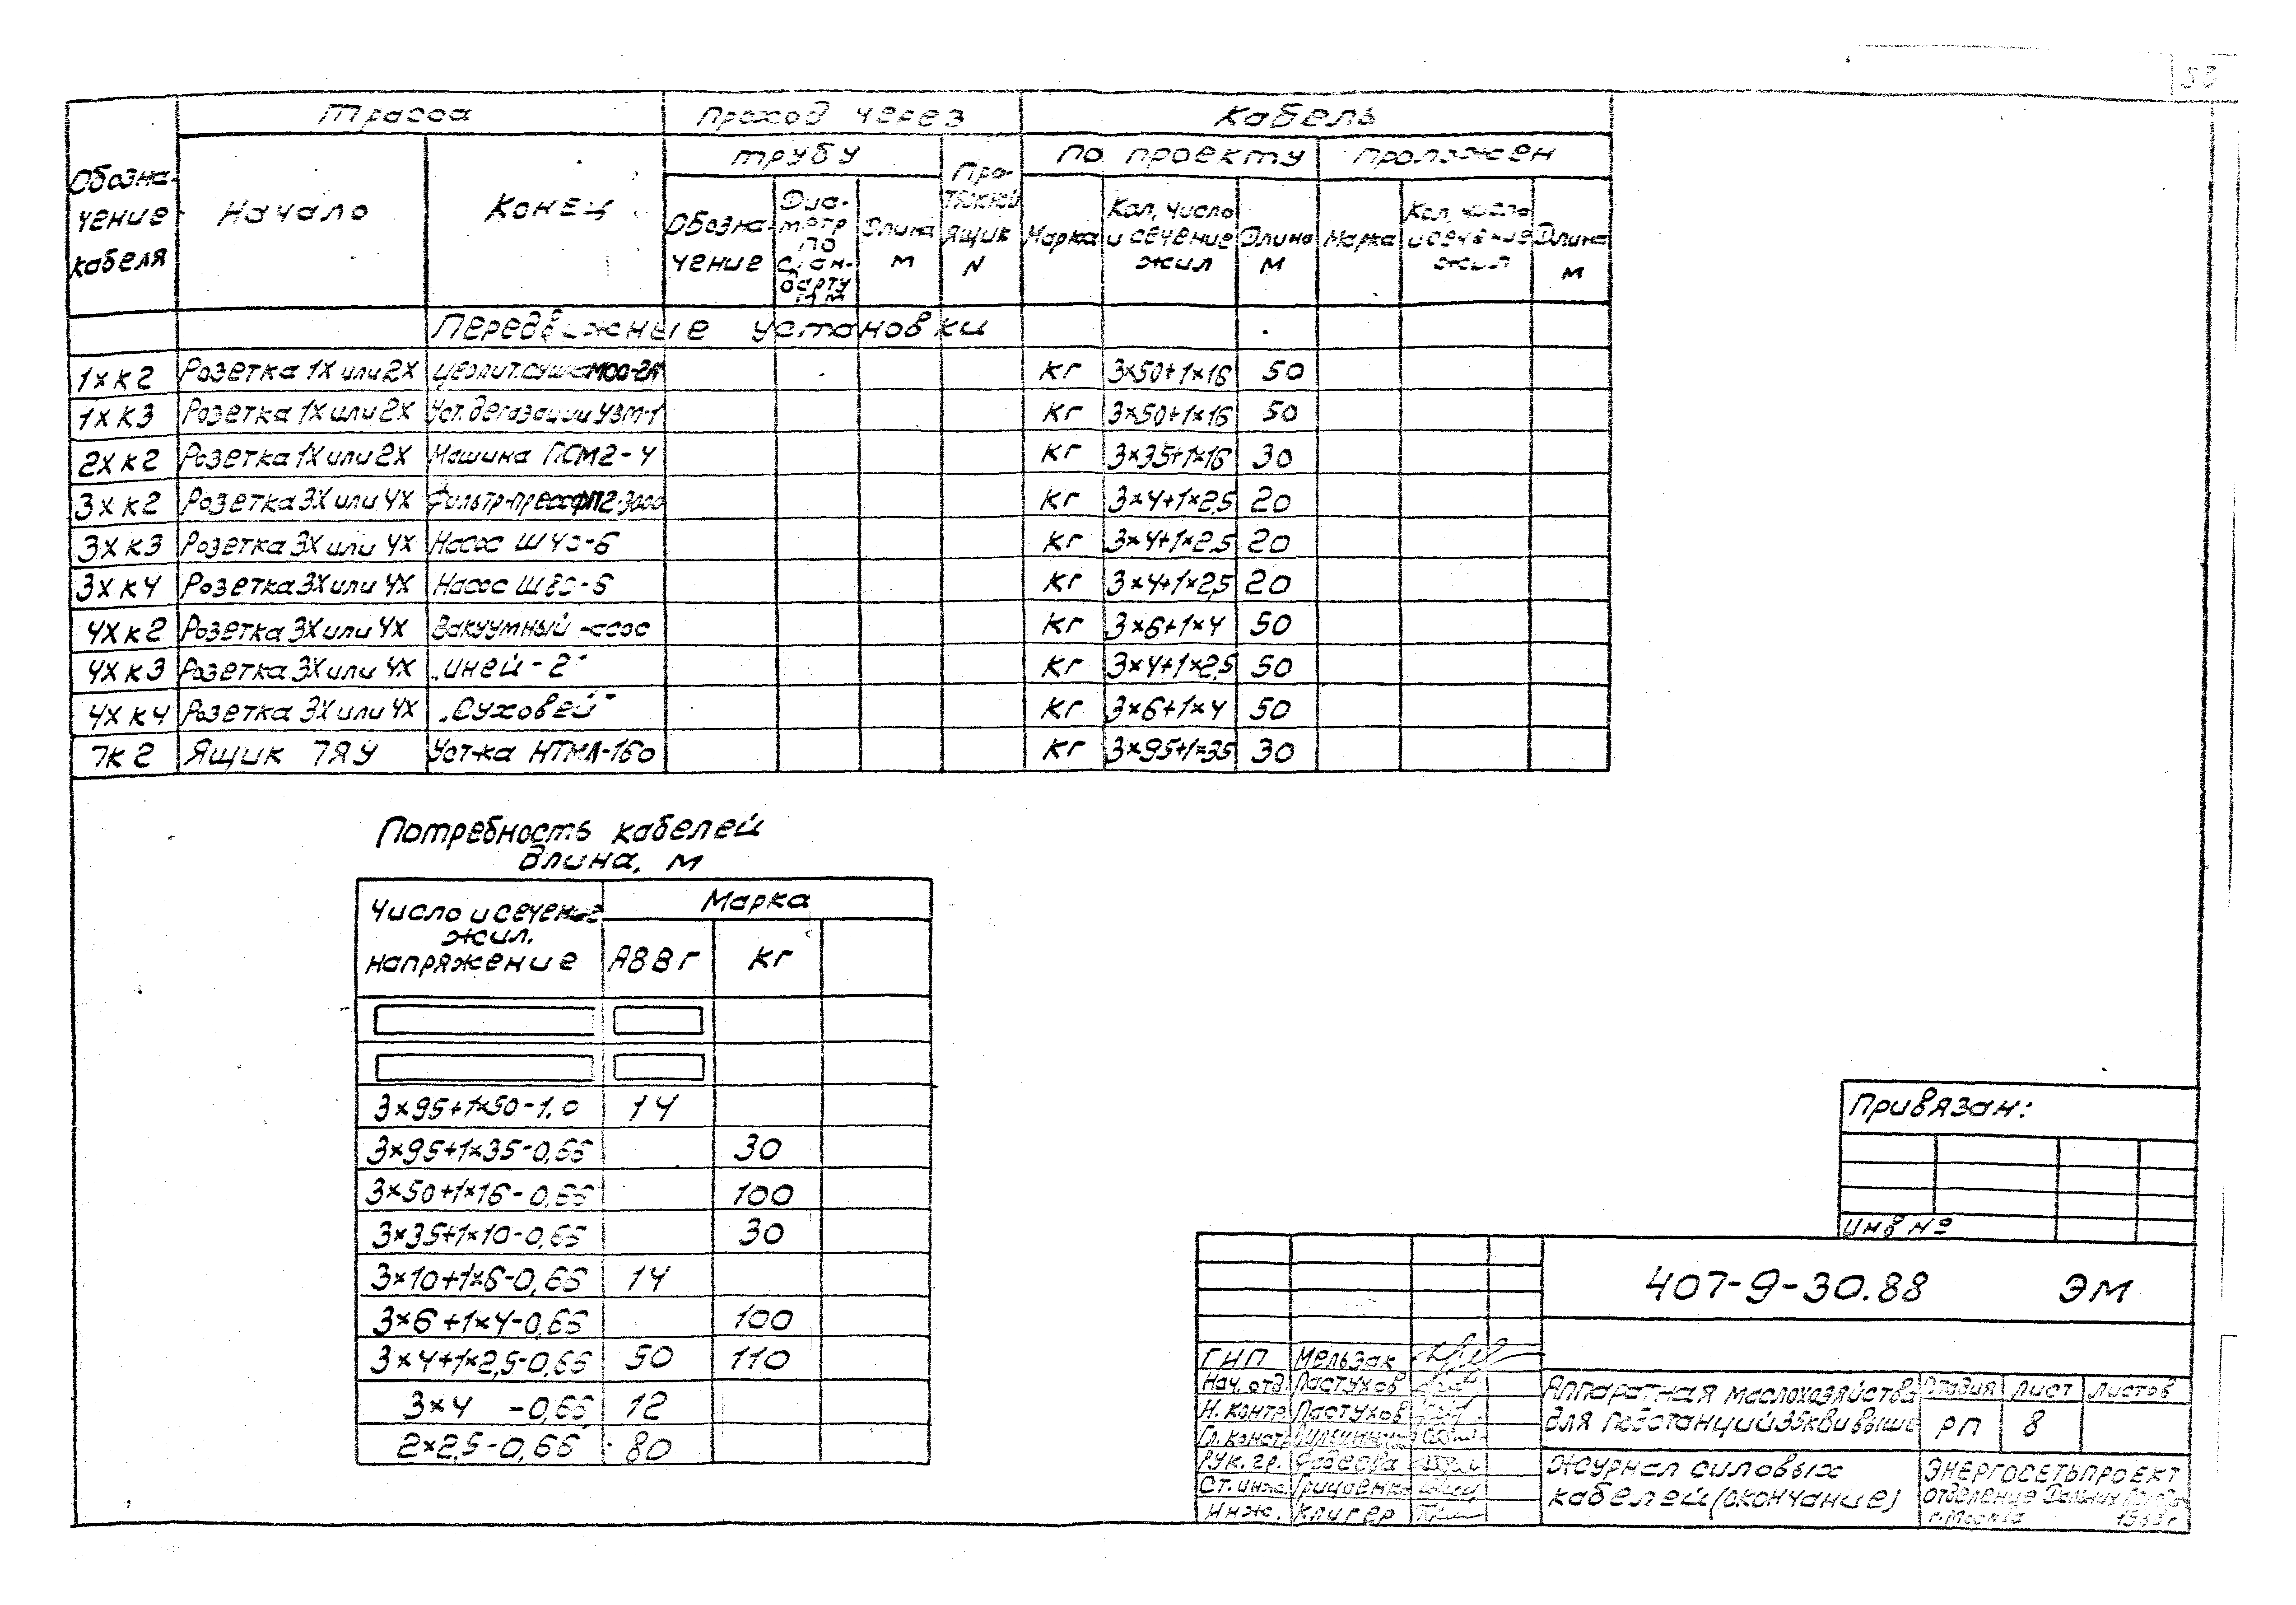 Трасса
Проход через
Кабель
Обозна-
чение
кабеля
Начало
Конец
трубу
Про-
тяжной
ящик
N
по проекту
проложен
Обозна-
чение
Диа-
метр
по
стан-
дарту
мм
Длина
м
Марка
Кол, число
и сечение
жил
Длина
м
Марка
Кол, число
и сечение
жил
Длина
м
Передвижные установки
1х к2 Розетка 1Х или 2Х Цеолит.суш КГ 3×50+1×16 50
1х к3 Розетка 1Х или 2Х Уст. дегазации УВМ-1 КГ 3×50+1×16 50
2х к2 Розетка 1Х или 2Х Машина ПСМ2-4 КГ 3×35+1×16 30
3х к2 Розетка 3Х или 4Х Фильтр-пресс ФП2-3000 КГ 3×4+1×2,5 20
3х к3 Розетка 3Х или 4Х Насос КГ 3×4+1×2,5 20
3х к4 Розетка 3Х или 4Х Насос КГ 3×4+1×2,5 20
4х к2 Розетка 3Х или 4Х Вакуумный насос КГ 3×6+1×4 50
4х к3 Розетка 3Х или 4Х „Иней-2" КГ 3×4+1×2,5 50
4х к4 Розетка 3Х или 4Х „Суховей" КГ 3×6+1×4 50
7к2 Ящик 7ЯУ Уст-ка НТМЛ-160 КГ 3×95+1×35 30
Потребность кабелей
длина, м
Число и сечение
жил.
напряжение
Марка
АВВГ КГ
3×95+1×50-1.0 14
3×95+1×35-0,66 30
3×50+1×16-0,66 100
3×35+1×10-0,66 30
3×10+1×6-0,66 14
3×6+1×4-0,66 100
3×4+1×2,5-0,66 50 110
3×4 -0,66 12
2×2,5-0,66 80
Привязан:
Инв №
407-9-30.88 ЭМ
ГИП Мельзак
Нач. отд. Пастухов
Н. контр. Пастухов
Гл. констр.
Рук. гр. Фадеева
Ст. инж. Грицаенко
Инж. Клигер
Аппаратная маслохозяйства
для подстанций 35 кВ и выше
Стадия Лист Листов
РП 8
Журнал силовых
кабелей (окончание)
ЭНЕРГОСЕТЬПРОЕКТ
отделение Дальних
г. Москва